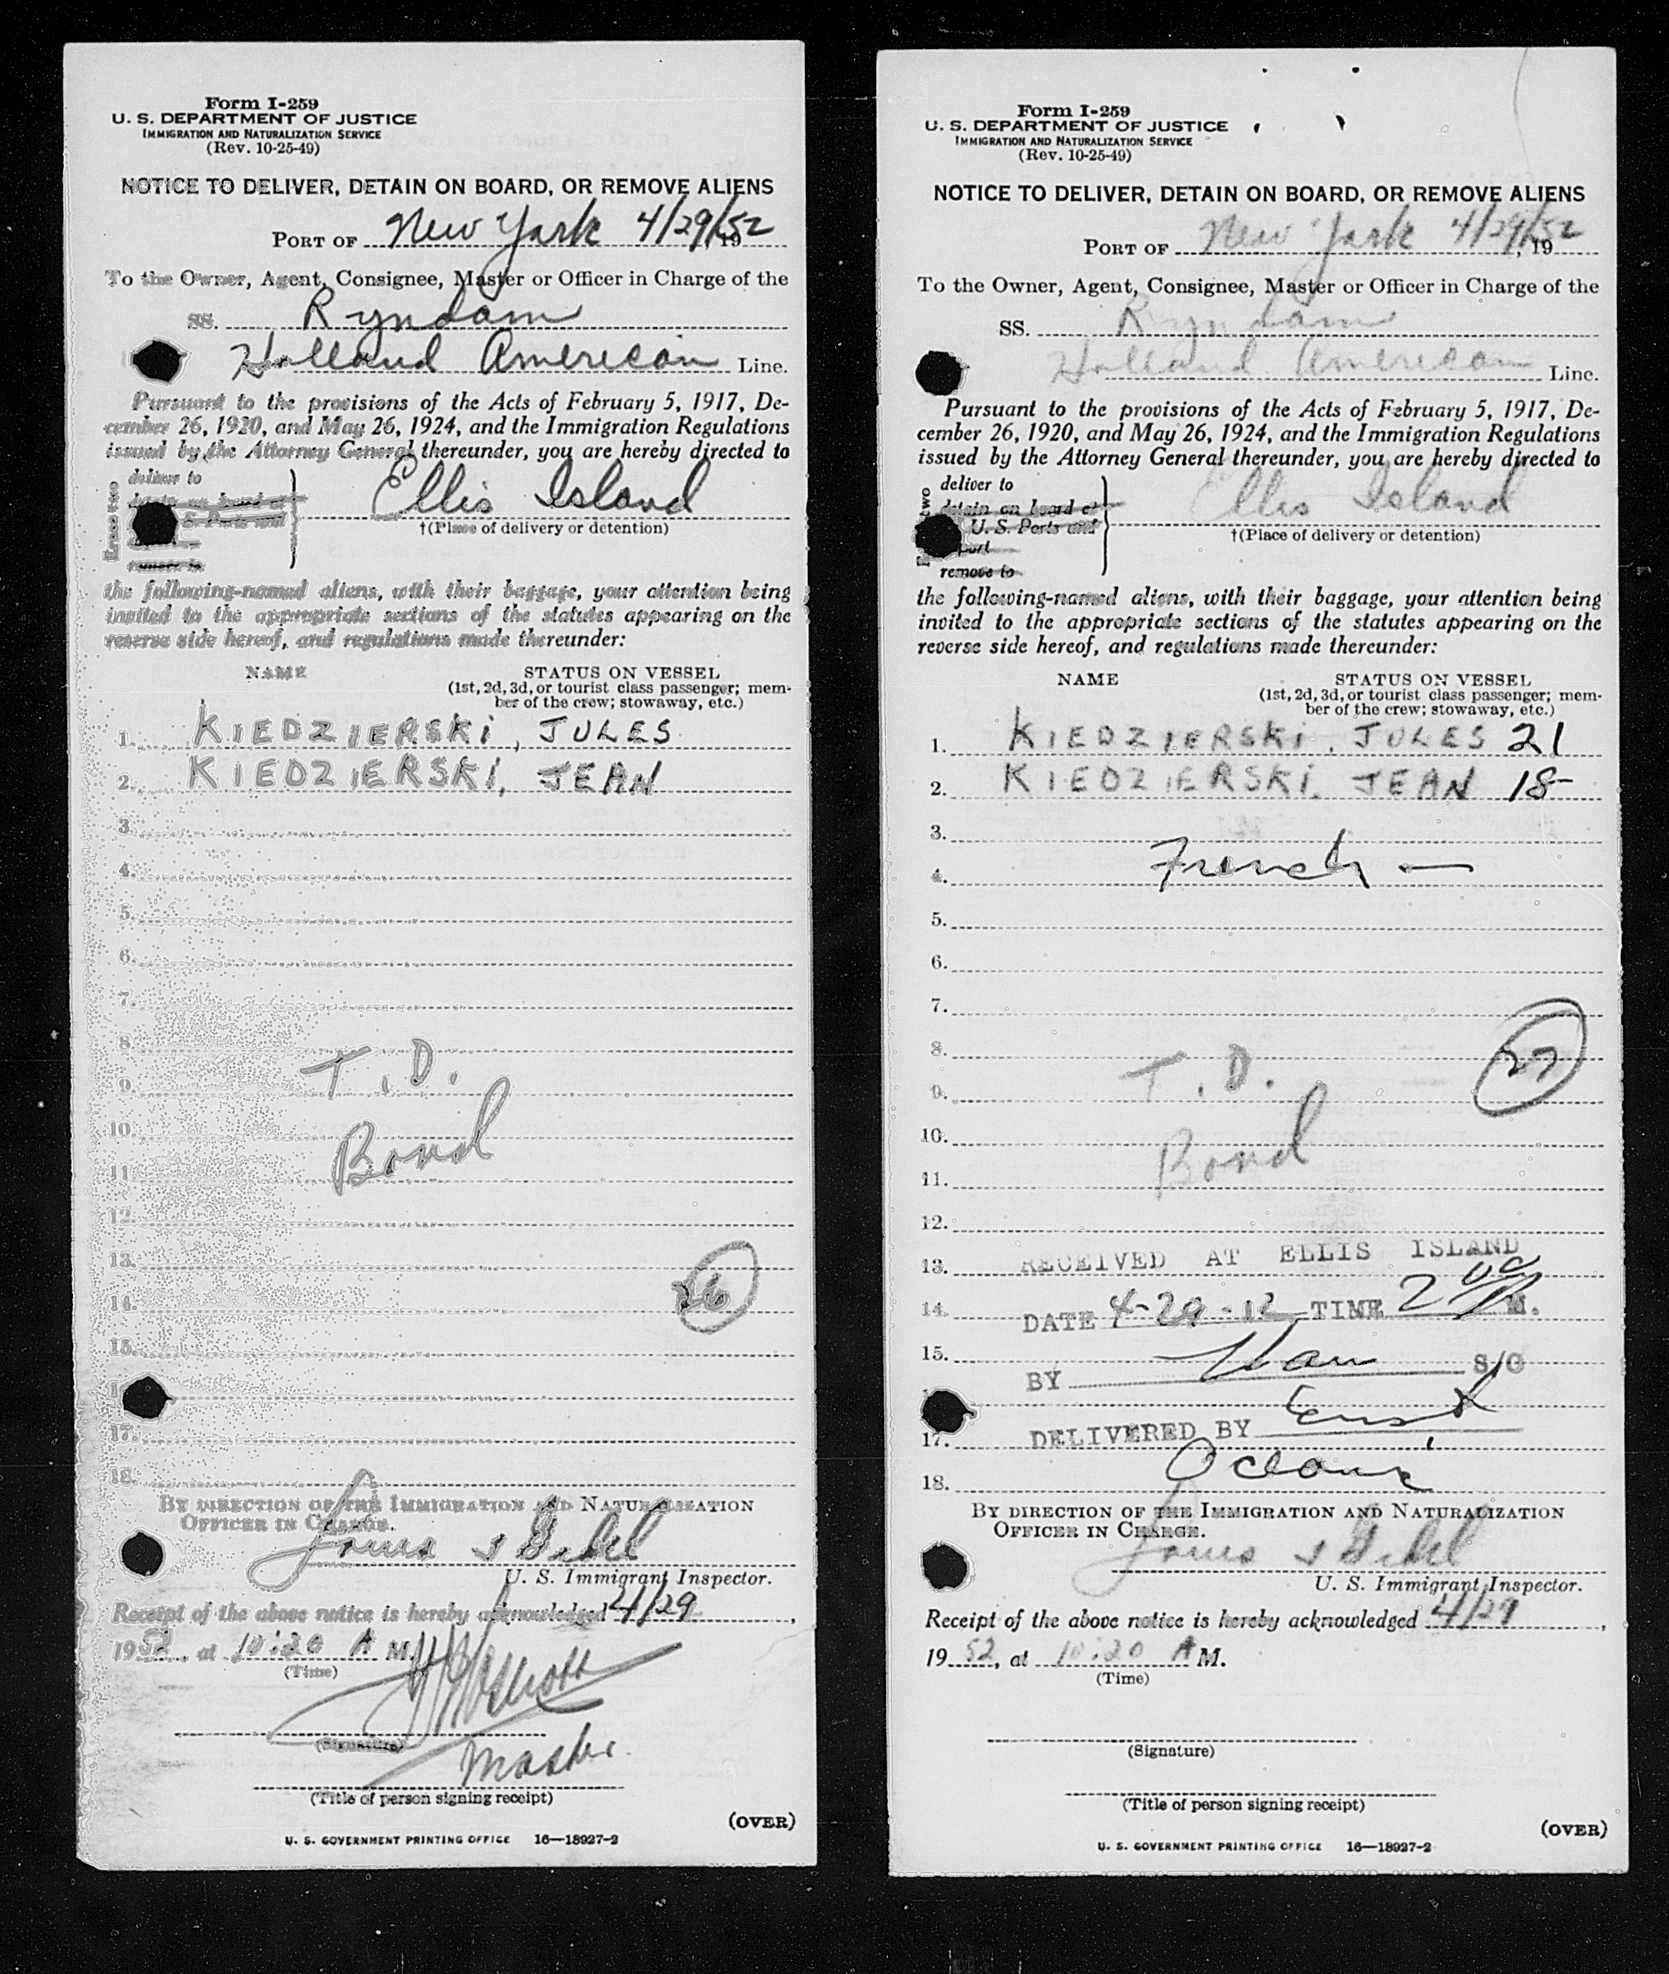 Form I-259
U. S. DEPARTMENT OF JUSTICE
IMMIGRATION AND NATURALIZATION SERVICE
(Rev. 10-25-49)
NOTICE TO DELIVER, DETAIN ON BOARD, OR REMOVE ALIENS
PORT OF New York 4/29/52 19
To the Owner, Agent, Consignee, Master or Officer in Charge of the
SS. Ryndam
Holland American Line.
Pursuant to the provisions of the Acts of February 5, 1917, De-
cember 26, 1920, and May 26, 1924, and the Immigration Regulations
issued by the Attorney General thereunder, you are hereby directed to
deliver to
detain on board at
U. S. Ports and
remove to
Erase two
Ellis Island
†(Place of delivery or detention)
the following-named aliens, with their baggage, your attention being
invited to the appropriate sections of the statutes appearing on the
reverse side hereof, and regulations made thereunder:
NAME STATUS ON VESSEL
(1st, 2d, 3d, or tourist class passenger; mem-
ber of the crew; stowaway, etc.)
1. KIEDZIERSKI, JULES
2. KIEDZIERSKI, JEAN
3.
4.
5.
6.
7.
8.
9. T. D.
10.
11. Bond
12.
13.
14. 26
15.
17.
18.
BY DIRECTION OF THE IMMIGRATION AND NATURALIZATION
OFFICER IN CHARGE.
U. S. Immigrant Inspector.
Receipt of the above notice is hereby acknowledged 4/29,
1952, at 10:20 A M.
(Time)
(Signature)
Master
(Title of person signing receipt)
(OVER)
U. S. GOVERNMENT PRINTING OFFICE 16—18927-2
Form I-259
U. S. DEPARTMENT OF JUSTICE
IMMIGRATION AND NATURALIZATION SERVICE
(Rev. 10-25-49)
NOTICE TO DELIVER, DETAIN ON BOARD, OR REMOVE ALIENS
PORT OF New York 4/29/52, 19
To the Owner, Agent, Consignee, Master or Officer in Charge of the
SS. Ryndam
Holland American Line.
Pursuant to the provisions of the Acts of February 5, 1917, De-
cember 26, 1920, and May 26, 1924, and the Immigration Regulations
issued by the Attorney General thereunder, you are hereby directed to
deliver to
detain on board at
U. S. Ports and
port
remove to
two
Ellis Island
†(Place of delivery or detention)
the following-named aliens, with their baggage, your attention being
invited to the appropriate sections of the statutes appearing on the
reverse side hereof, and regulations made thereunder:
NAME STATUS ON VESSEL
(1st, 2d, 3d, or tourist class passenger; mem-
ber of the crew; stowaway, etc.)
1. KIEDZIERSKI, JULES 21
2. KIEDZIERSKI, JEAN 18
3.
4. French —
5.
6.
7.
8. 27
9. T. D.
10.
11. Bond
12.
13. RECEIVED AT ELLIS ISLAND
14. DATE TIME 2 00 M.
15.
BY S/O
DELIVERED BY
17.
18.
BY DIRECTION OF THE IMMIGRATION AND NATURALIZATION
OFFICER IN CHARGE.
U. S. Immigrant Inspector.
Receipt of the above notice is hereby acknowledged 4/29,
19 52, at 10:20 A M.
(Time)
(Signature)
(Title of person signing receipt)
(OVER)
U. S. GOVERNMENT PRINTING OFFICE 16—18927-2